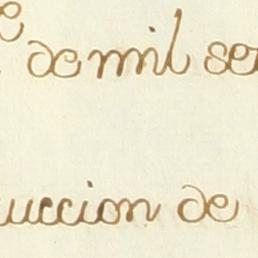 de mil se
uccion de